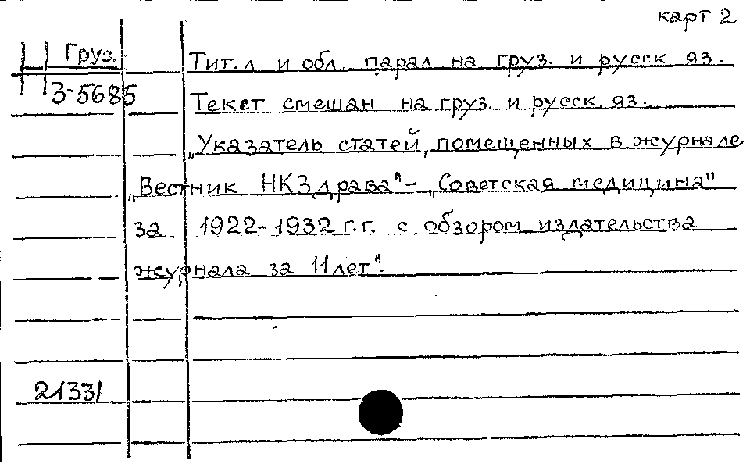 карт 2
Груз.
Тит.л и обл. парал на груз. и русск яз.
3-5685
Текст смешан на груз. и русск яз.
„Указатель статей, помещенных в журнале
„Вестник НКЗдрава"- „Советская медицина"
за 1922-1932 г.г. с обзором издательства
журнала за 11 лет".
21331